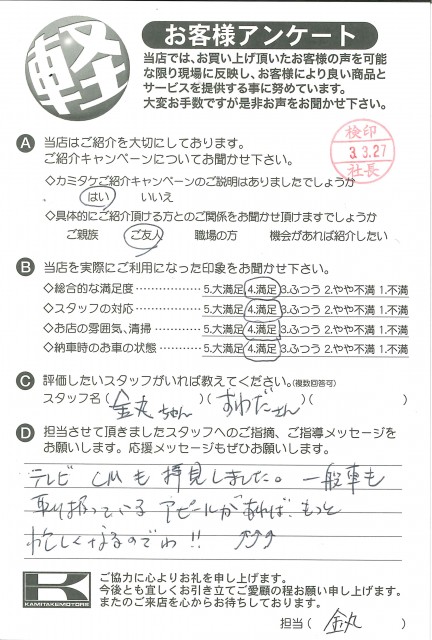 軽
お客様アンケート
当店では、お買い上げ頂いたお客様の声を可能
な限り現場に反映し、お客様により良い商品と
サービスを提供する事に努めています。
大変お手数ですが是非お声をお聞かせ下さい。
検印
3.3.27
社長
A 当店はご紹介を大切にしております。
ご紹介キャンペーンについてお聞かせ下さい。
◇カミタケご紹介キャンペーンのご説明はありましたでしょうか
はい いいえ
◇具体的にご紹介頂ける方とのご関係をお聞かせ頂けますでしょうか
ご親族 ご友人 職場の方 機会があれば紹介したい
B 当店を実際にご利用になった印象をお聞かせ下さい。
◇総合的な満足度‥‥‥‥‥‥5.大満足 4.満足 3.ふつう 2.やや不満 1.不満
◇スタッフの対応‥‥‥‥‥‥5.大満足 4.満足 3.ふつう 2.やや不満 1.不満
◇お店の雰囲気、清掃‥‥‥‥5.大満足 4.満足 3.ふつう 2.やや不満 1.不満
◇納車時のお車の状態‥‥‥‥5.大満足 4.満足 3.ふつう 2.やや不満 1.不満
C 評価したいスタッフがいれば教えてください。(複数回答可)
スタッフ名(金丸ちゃん)(すわださん)( )
D 担当させて頂きましたスタッフへのご指摘、ご指導メッセージを
お願いします。応援メッセージもぜひお願いします。
テレビCMも拝見しました。一般車も
取り扱っている アピールがあれば、もっと
忙しくなるのでわ!! ↑↑↑
K
KAMITAKEMOTORS
ご協力に心よりお礼を申し上げます。
今後とも宜しくお引き立てご愛顧の程お願い申し上げます。
またのご来店を心からお待ちしております。
担当(金丸)